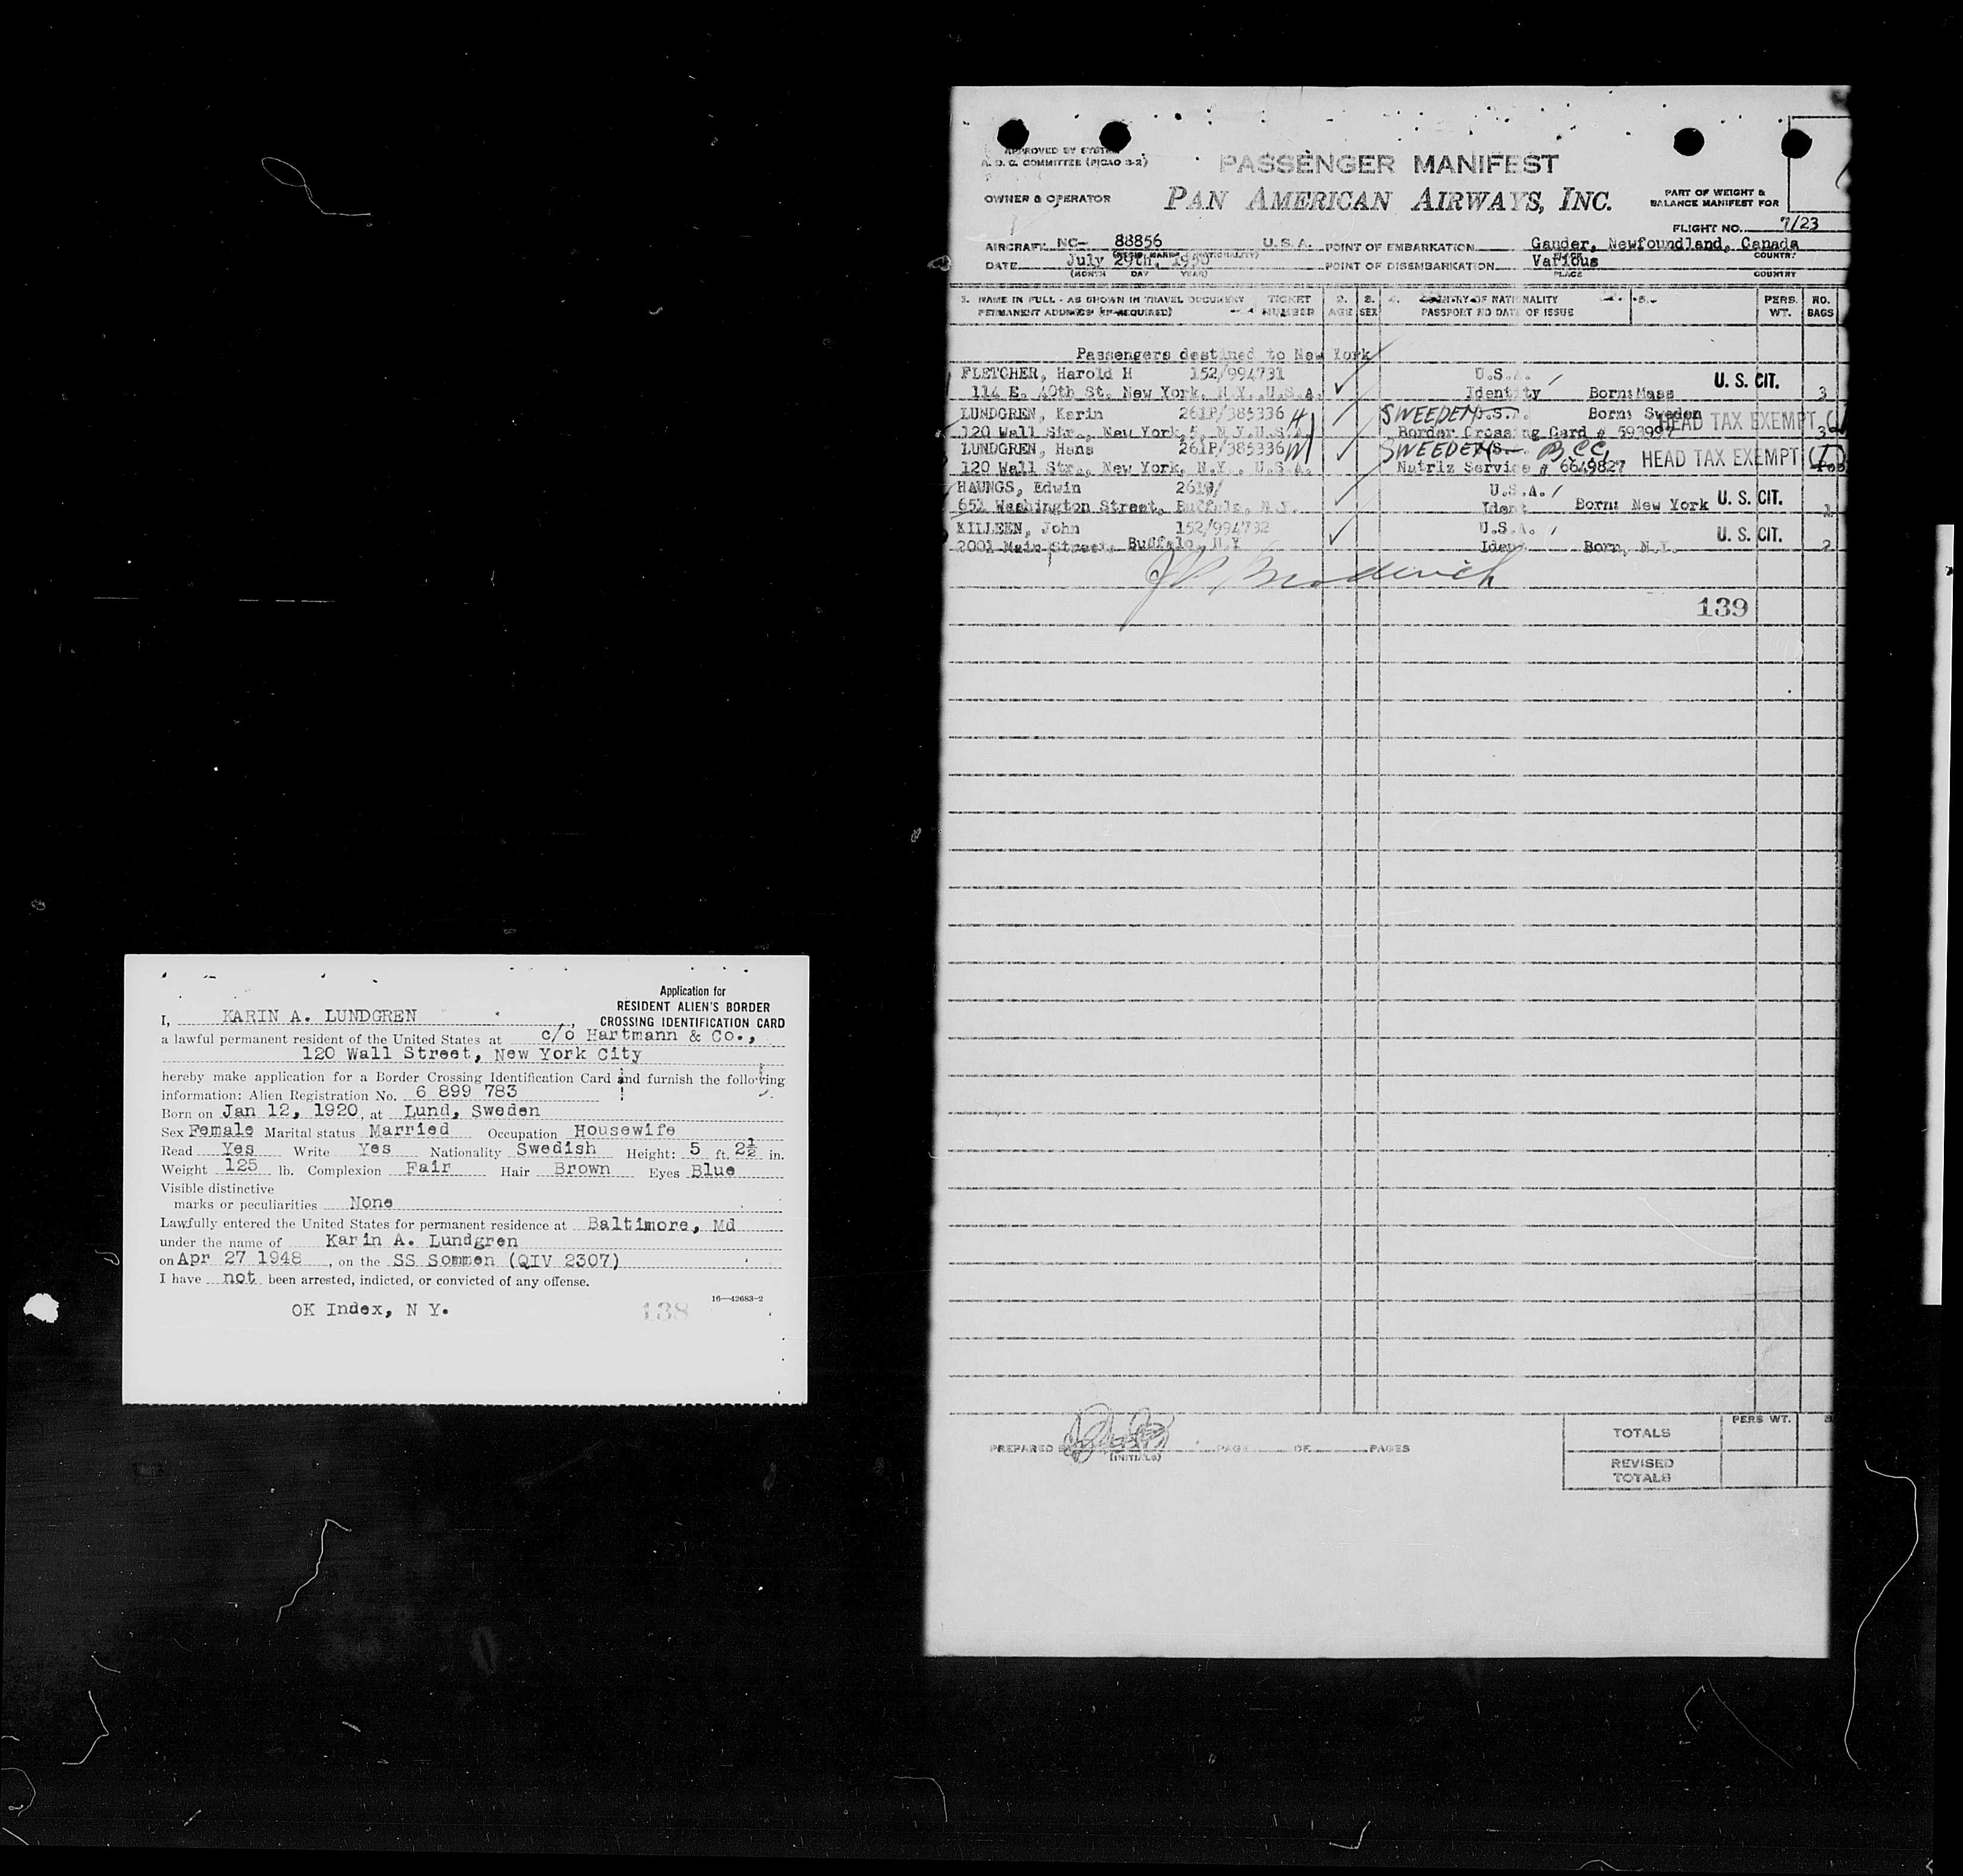 Application for
RESIDENT ALIEN'S BORDER
CROSSING IDENTIFICATION CARD
I, KARIN A. LUNDGREN
a lawful permanent resident of the United States at c/o Hartmann & Co.,
120 Wall Street, New York City
hereby make application for a Border Crossing Identification Card and furnish the following
information: Alien Registration No. 6 899 783
Born on Jan 12, 1920, at Lund, Sweden
Sex Female Marital status Married Occupation Housewife
Read Yes Write Yes Nationality Swedish Height: 5 ft. 2½ in.
Weight 125 lb. Complexion Fair Hair Brown Eyes Blue
Visible distinctive
marks or peculiarities None
Lawfully entered the United States for permanent residence at Baltimore, Md
under the name of Karin A. Lundgren
on Apr 27 1948, on the SS Sommen (QIV 2307)
I have not been arrested, indicted, or convicted of any offense.
16—42683-2
OK Index, N Y.
138
APPROVED BY
A. D. C. COMMITTEE (PICAO 3-2)
PASSENGER MANIFEST
OWNER & OPERATOR
PAN AMERICAN AIRWAYS, INC.
PART OF WEIGHT &
BALANCE MANIFEST FOR
FLIGHT NO. 7/23
AIRCRAFT NC- 88856 U.S.A. POINT OF EMBARKATION Gander, Newfoundland, Canada
DATE July 29th, 1950 POINT OF DISEMBARKATION Various
(MONTH DAY YEAR) PLACE COUNTRY
1. NAME IN FULL - AS SHOWN IN TRAVEL DOCUMENT TICKET 2. 3. 4. COUNTRY OF NATIONALITY 5. PERS. NO.
PERMANENT ADDRESS (IF REQUIRED) NUMBER AGE SEX PASSPORT NO DATE OF ISSUE WT. BAGS
Passengers destined to New York
FLETCHER, Harold H 152/994731 U.S.A. U. S. CIT.
114 E. 40th St. New York, N.Y. U.S.A. Identity Born: Mass 3
LUNDGREN, Karin 261P/385336 H SWEEDEN U.S.A. Born: Sweden HEAD TAX EXEMPT
120 Wall Str., New York, 5, N.Y. U.S.A. Border Crossing Card # 593997 3
LUNDGREN, Hans 261P/385336 W SWEEDEN B.C.C. HEAD TAX EXEMPT
120 Wall Str., New York, N.Y., U.S.A. Natrlz Service # 6649827
HAUNGS, Edwin 261P/ U.S.A. U. S. CIT.
651 Washington Street, Buffalo, N.Y. Ident Born: New York 1
KILLEEN, John 152/994732 U.S.A. U. S. CIT.
2001 Main Street, Buffalo, N.Y. Ident Born, N.Y. 2
139
PREPARED BY (INITIALS) PAGE OF PAGES
PERS WT.
TOTALS
REVISED
TOTALS